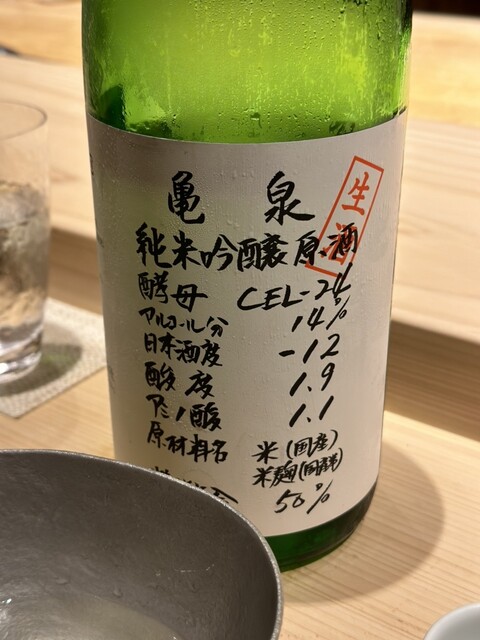 亀泉
生酒
純米吟醸原酒
酵母 CEL-24
アルコール分 14%
日本酒度 -12
酸度 1.9
アミノ酸 1.1
原材料名 米(国産)
米麹(国産米)
50%